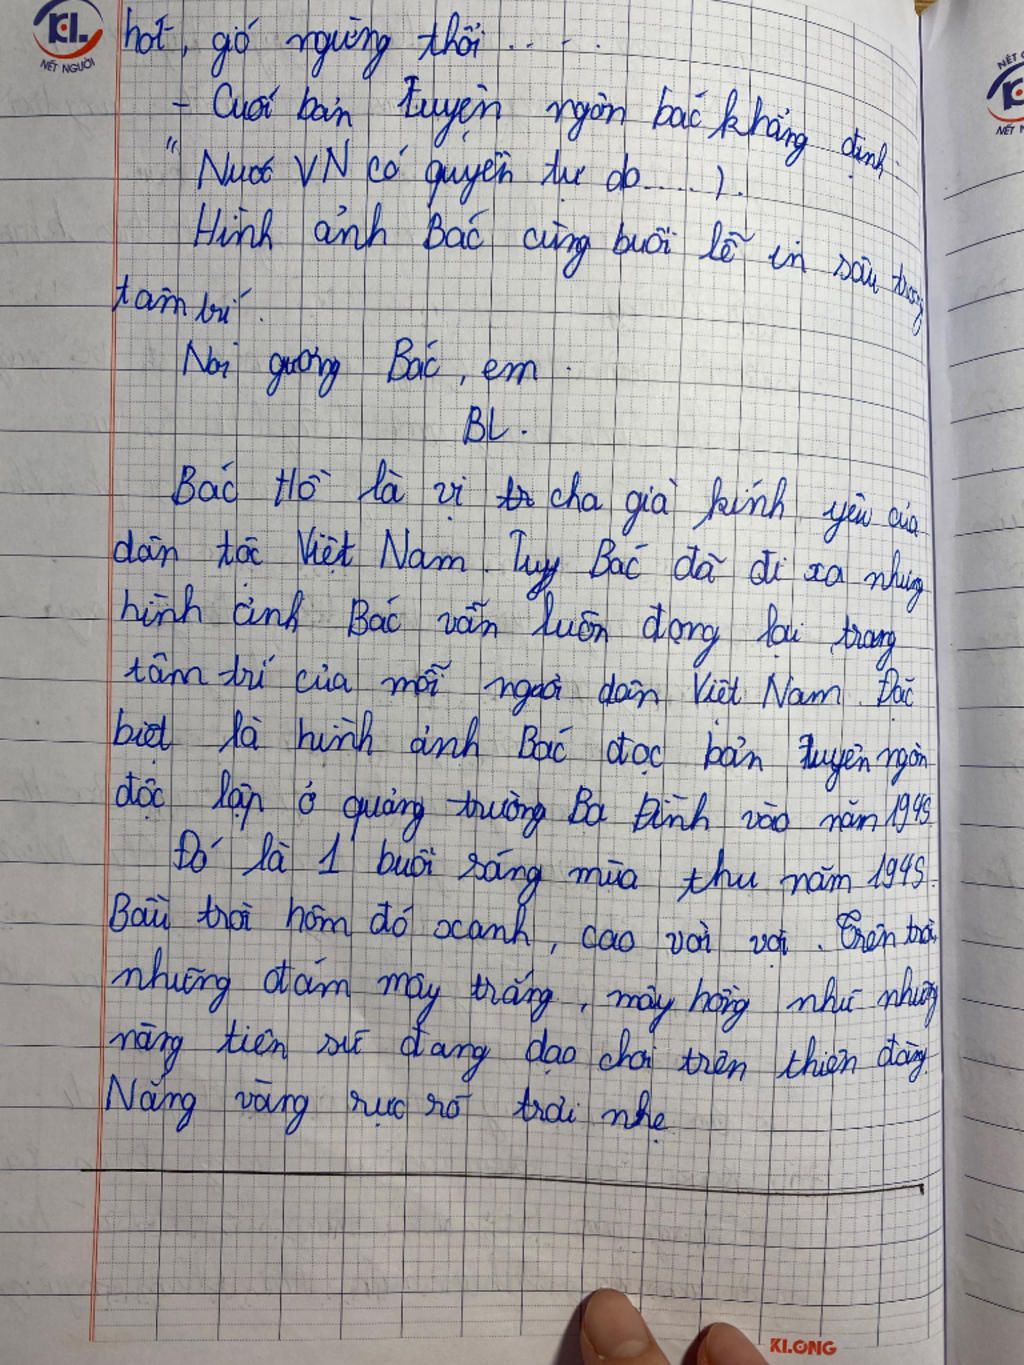 KL.
NÉT NGƯỜI
hót, gió ngừng thổi . . . .
- Cuối bản tuyên ngôn bác khẳng định:
" Nước VN có quyền tự do.....).
Hình ảnh Bác cùng buổi lễ in sâu trong
tâm trí.
Noi gương Bác, em.
BL.
Bác Hồ là vị tr cha già kính yêu của
dân tộc Việt Nam. Tuy Bác đã đi xa nhưng
hình ảnh Bác vẫn luôn đọng lại trong
tâm trí của mỗi người dân Việt Nam. Đặc
biệt là hình ảnh Bác đọc bản tuyên ngôn
độc lập ở quảng trường Ba Đình vào năm 1945
Đó là 1 buổi sáng mùa thu năm 1945.
Bầu trời hôm đó xanh, cao vời vợi. Trên trời
những đám mây trắng, mây hồng như những
nàng tiên nữ đang dạo chơi trên thiên đàng.
Nắng vàng rực rỡ trải nhẹ
KLONG